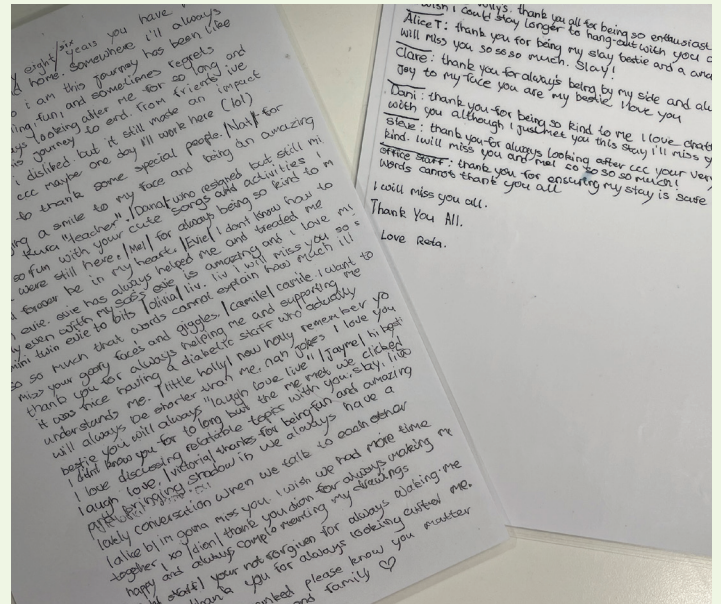 eight/six years you have
home. Somewhere i'll always
i am this journey has been like
fun, and sometimes regrets
looking after me for so long and
journey to end. From friends ive
disliked. but it still made an impact
ccc maybe one day i'll work here (lol)
to thank some special people. Nat/ for
a smile to my face and being an amazing
"teacher". /Dana/ who resigned but still mi
so fun with your cute songs and activities i
were still here. /Mel/ for always being so kind to m
forever be in my heart. /Evie/ I dont know how to
evie. evie has always helped me and treated me
even with my sass evie is amazing and I love my
mini twin evie to bits /olivia/ liv. liv I will miss you so s
so so much that words cannot explain how much ill
miss your goofy faces and giggles. /camile/ camile. i want to
thank you for always helping me and supporting me
it was nice having a diabetic staff who actually
understands me. /little holly/ now holly remember yo
will always be shorter than me. nah jokes I love you
bestie you will always "laugh love live" /Jayme/ hi best
I didnt know you for to long but the me met we clicked
I love discussing relatable topics with you, slay. live
laugh love. /victoria/ thanks for being fun and amazing
and bringing shadow in we always have a
lately conversation when we talk to each other
/alice b/ im gonna miss you i wish we had more time
together xo /dion/ thank you dion for always making me
happy and always complementing my drawings
staff/ your not forgiven for always waking me
thank you for always looking after me.
please know you matter
and family ♡
thank you all for being so enthusiast
wish I could stay longer to hang-out with you a
Alice T: thank you for being my slay bestie and a
will miss you so so so much. Slay!
Clare: thank you for always being by my side and
Joy to my face you are my bestie I love you
Dani: thank you for being so kind to me I love chatt
with you although I just met you this stay I'll miss y
Steve: thank you for always looking after ccc your very
kind. I will miss you and mel so so so so much!
office staff: thank you for ensuring my stay is safe
words cannot thank you all
I will miss you all.
Thank You All.
Love Reta.